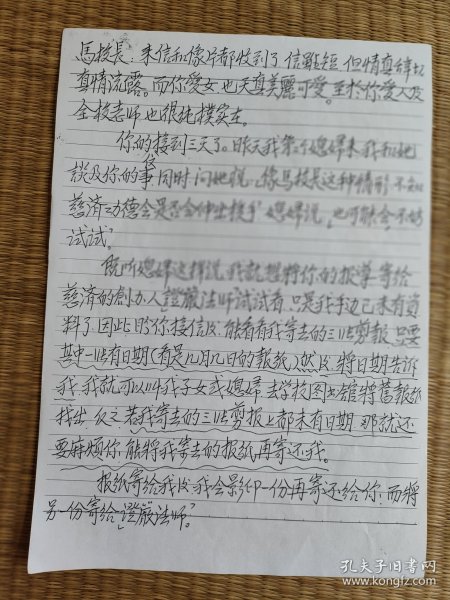 馬校長：来信和像片都收到了信雖短但情真
真情流露。而你爱女也天真美麗可爱。至於你爱人及
全校老师也很純樸实在。
你的信接到三天了。昨天我第二个媳婦来我和她
談及你的事同时问她説，像馬校長这种情形不知
慈済功德会是否会伸出援手 媳婦説，也可能会不妨
試試？
既所媳婦这樣説，我就想將你的报導寄给
慈済的創办人「證嚴法师」試試看 只是我手边已未有資
料了 因此盼你接信後，能看看我寄去的三張剪報 只要
其中一張有日期（看是几月几日的報紙）然後，將日期告訴
我，我就可以叫我子女或媳婦去学校图书館將舊報紙
找出 反之若我寄去的三張剪报上都未有日期 那就还
要麻烦你，能將我寄去的报紙再寄还我。
报紙寄給我後，我会影印一份再寄还给你，而將
另一份寄給「證嚴法师」。
孔夫子旧书网